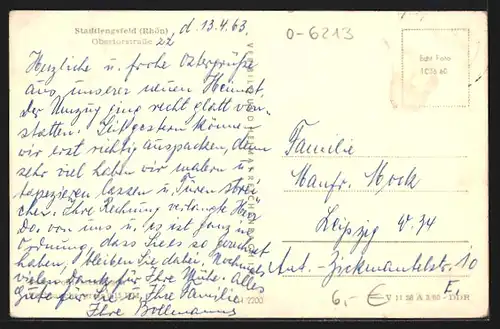 Stadtlengsfeld (Rhön)
Obertorstraße 22, d. 13.4.63.
0-6213
Herzliche u. frohe Ostergrüße
aus unserer neuen Heimat.
Der Umzug ging recht glatt von-
statten. Seit gestern können
wir erst richtig auspacken, denn
sehr viel haben wir malern u.
tapezieren lassen u. Türen strei-
chen. Ihre Rechnung verlangte Herr
Do. von uns u. es ist ganz in
Ordnung, dass Sie es so gemacht
haben, bleiben Sie dabei. Nochmals
vielen Dank für Ihre Mühe. Alles
Gute für Sie u. Ihre Familie
Ihre Bollmanns
Echt Foto
Familie
Manfr. Mock
Leipzig W. 34
Ant.-Zickmantelstr. 10
6,- €
E.
V 11 50 A 3/60 - DDR